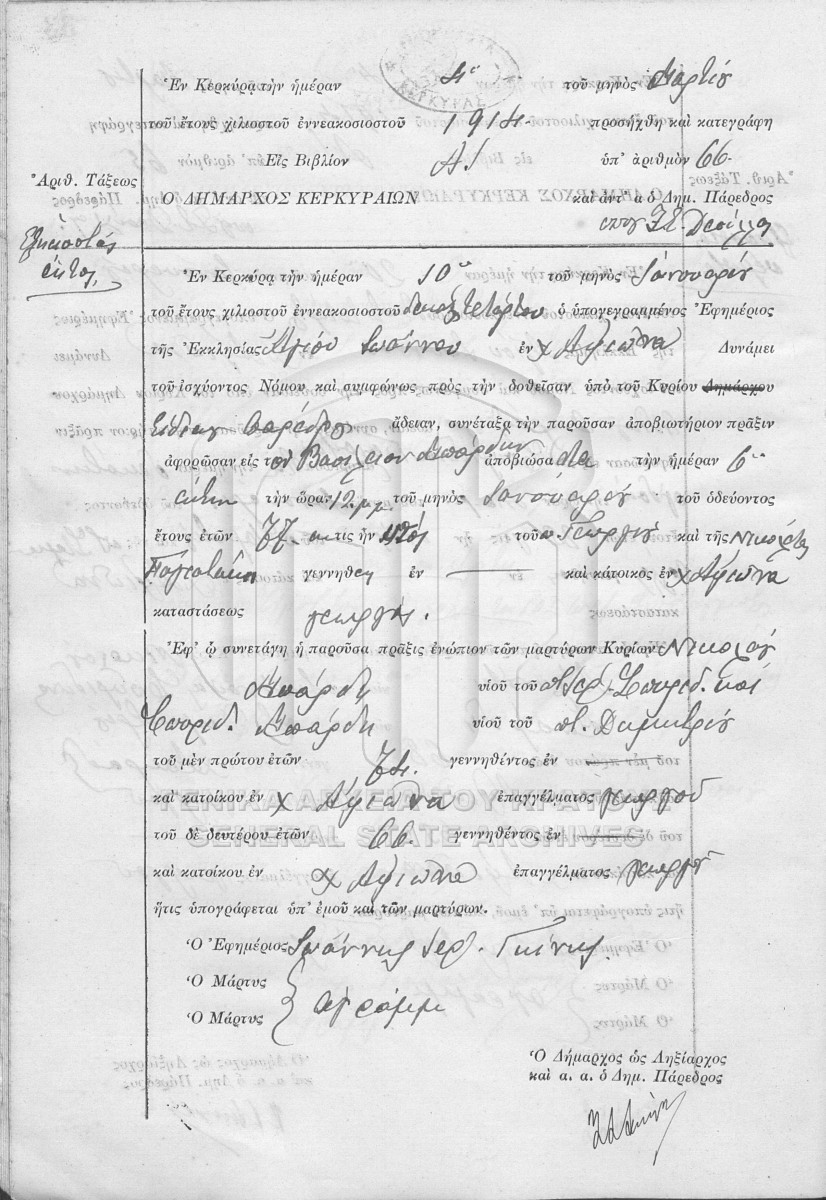 Ἐν Κερκύρᾳ τὴν ἡμέραν 4η τοῦ μηνὸς Μαρτίου
τοῦ ἔτους χιλιοστοῦ ἐννεακοσιοστοῦ 1914 προσήχθη καὶ κατεγράφη
Εἰς Βιβλίον Α! ὑπ' ἀριθμὸν 66
Ἀριθ. Τάξεως
Ὁ ΔΗΜΑΡΧΟΣ ΚΕΡΚΥΡΑΙΩΝ καὶ ἀντ' α ὁ Δημ. Πάρεδρος
ἕκτη
Ἐν Κερκύρᾳ τὴν ἡμέραν 10η τοῦ μηνὸς Ἰανουαρίου
τοῦ ἔτους χιλιοστοῦ ἐννεακοσιοστοῦ δεκάτου τετάρτου ὁ ὑπογεγραμμένος Ἐφημέριος
τῆς Ἐκκλησίας Ἁγίου Ἰωάννου ἐν χ Ἀφιώνα Δυνάμει
τοῦ ἰσχύοντος Νόμου καὶ συμφώνως πρὸς τὴν δοθεῖσαν ὑπὸ τοῦ Κυρίου Δημάρχου
Εἰδικοῦ Παρέδρου ἄδειαν, συνέταξα τὴν παροῦσαν ἀποβιωτήριον πρᾶξιν
ἀφορῶσαν εἰς τὸν Βασίλειον Μπάρδην ἀποβιώσαντα τὴν ἡμέραν 6ην
ἕκτην τὴν ὥραν 12 μ.μ. τοῦ μηνὸς Ἰανουαρίου τοῦ ὁδεύοντος
ἔτους ἐτῶν 77 τις ἦν υἱὸς τοῦ π Γεωργίου καὶ τῆς
γεννηθεὶς ἐν — καὶ κάτοικος ἐν χ Ἀφιώνα
καταστάσεως γεωργός.
Ἐφ' ᾧ συνετάγη ἡ παροῦσα πρᾶξις ἐνώπιον τῶν μαρτύρων Κυρίων Νικολάου
Μπάρδη υἱοῦ τοῦ π ἱερ. Σπυρίδ. καὶ
Σπυρίδ. Μπάρδη υἱοῦ τοῦ π. Δημητρίου
τοῦ μὲν πρώτου ἐτῶν 74. γεννηθέντος ἐν
καὶ κατοίκου ἐν χ Ἀφιώνα ἐπαγγέλματος γεωργοῦ
τοῦ δὲ δευτέρου ἐτῶν 66. γεννηθέντος ἐν
καὶ κατοίκου ἐν χ Ἀφιώνα ἐπαγγέλματος γεωργοῦ
ἥτις ὑπογράφεται ὑπ' ἐμοῦ καὶ τῶν μαρτύρων.
Ὁ Ἐφημέριος Ἰωάννης ἱερ. Γκίνης
Ὁ Μάρτυς
ἀγράμμ
Ὁ Μάρτυς
Ὁ Δήμαρχος ὡς Ληξίαρχος
καὶ α. α. ὁ Δημ. Πάρεδρος
ΓΕΝΙΚΑ ΑΡΧΕΙΑ ΤΟΥ ΚΡΑΤΟΥΣ
GENERAL STATE ARCHIVES
ΚΕΡΚΥΡΑΣ